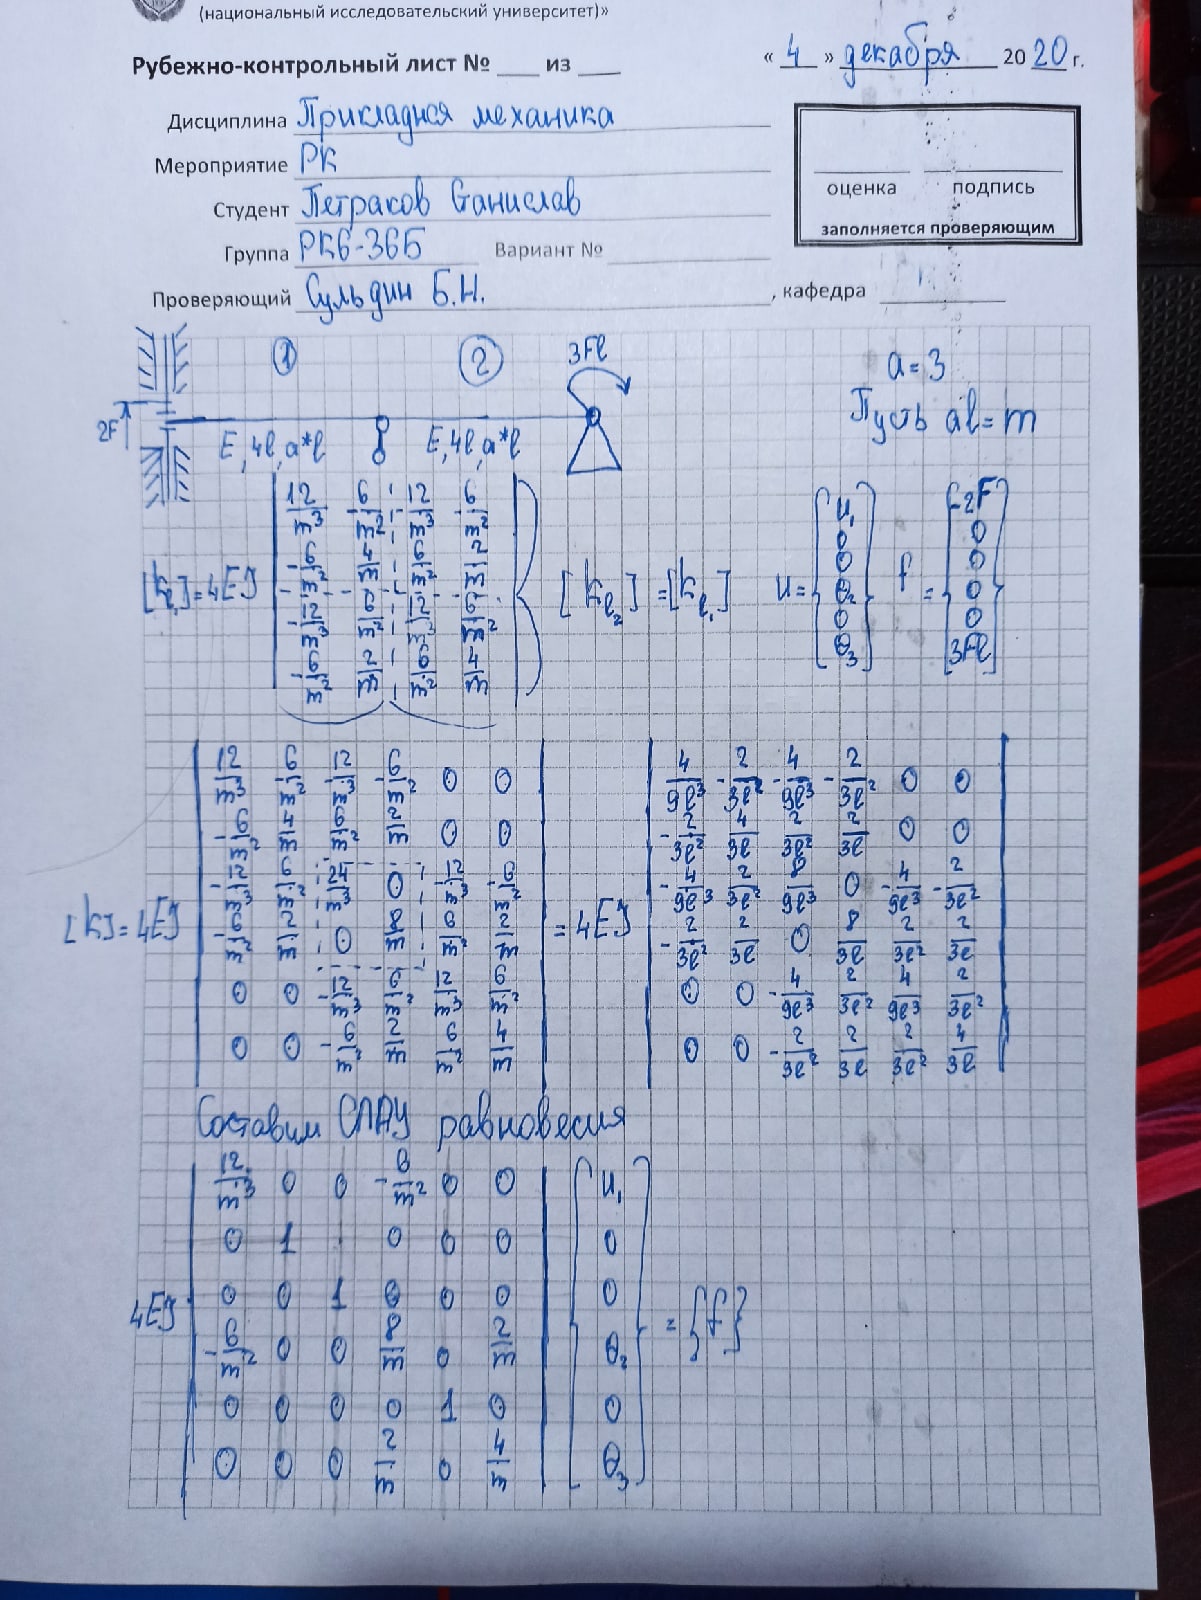 (национальный исследовательский университет)»
Рубежно-контрольный лист № ___ из ___ « 4 » декабря 2020 г.
Дисциплина Прикладная механика
Мероприятие РК
Студент Петраков Станислав
Группа РК6-36Б Вариант №
Проверяющий Сульдин Б.Н. , кафедра
оценка подпись
заполняется проверяющим
1 2 3Fl
a=3
Пусть al=m
2F
E, 4l, a*l E, 4l, a*l
[k_l₁]=4EJ
12/m³ -6/m² -12/m³ -6/m²
-6/m² 4/m 6/m² 2/m
-12/m³ 6/m² 12/m³ 6/m²
-6/m² 2/m 6/m² 4/m
[k_l₂]=[k_l₁]
u= {u₁ 0 0 θ₂ 0 θ₃}
f= {-2F 0 0 0 0 3Fl}
[k]=4EJ
12/m³ -6/m² -12/m³ -6/m² 0 0
-6/m² 4/m 6/m² 2/m 0 0
-12/m³ 6/m² 24/m³ 0 -12/m³ -6/m²
-6/m² 2/m 0 8/m 6/m² 2/m
0 0 -12/m³ 6/m² 12/m³ 6/m²
0 0 -6/m² 2/m 6/m² 4/m
=4EJ
4/9l³ -2/3l² -4/9l³ -2/3l² 0 0
-2/3l² 4/3l 2/3l² 2/3l 0 0
-4/9l³ 2/3l² 8/9l³ 0 -4/9l³ -2/3l²
-2/3l² 2/3l 0 8/3l 2/3l² 2/3l
0 0 -4/9l³ 2/3l² 4/9l³ 2/3l²
0 0 -2/3l² 2/3l 2/3l² 4/3l
Составим СЛАУ равновесия
4EJ
12/m³ 0 0 -6/m² 0 0
0 1 0 0 0
0 0 1 0 0 0
-6/m² 0 0 8/m 0 2/m
0 0 0 0 1 0
0 0 0 2/m 0 4/m
{u₁ 0 0 θ₂ 0 θ₃}
={f}